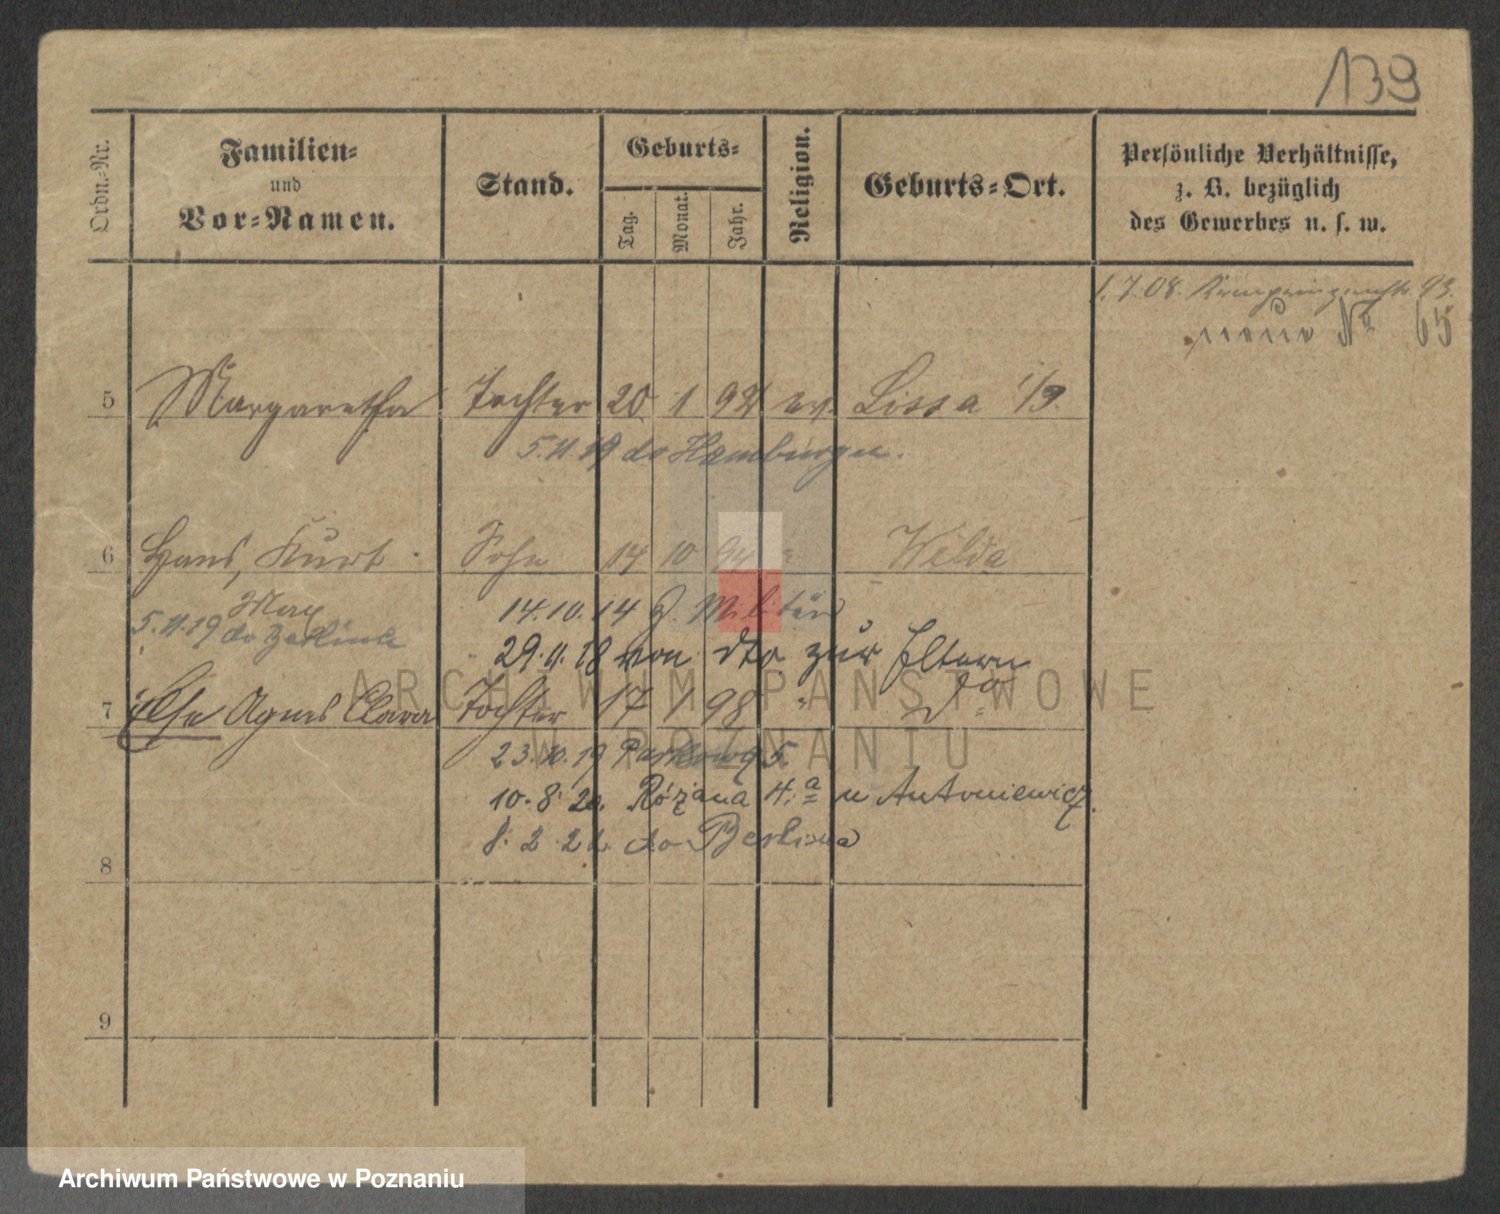 139
Ordn.-Nr.
Familien-
und
Vor-Namen.
Stand.
Geburts-
Tag.
Monat.
Jahr.
Religion.
Geburts-Ort.
Persönliche Verhältnisse,
z. B. bezüglich
des Gewerbes u. s. w.
1. 7. 08. Kronprinzenstr. 93.
neue Nr 65
5 Margaretha Tochter 20 1 92 ev. Lissa i/P.
5.11.19 do Hamburga.
6 Hans, Kurt Sohn 14 10 94 " Wilda
Max
14.10.14 z. Militär
5.11.19 do Berlina
29.11.18 von dto zur Eltern
7 Else Agnes Clara Tochter 17 1 98 " do
23.10.19 Parkowa 5.
10.8.20. Różana 4a u Antoniewicz.
8. 2 21. do Berlina
8
9
ARCHIWUM PAŃSTWOWE
W POZNANIU
Archiwum Państwowe w Poznaniu